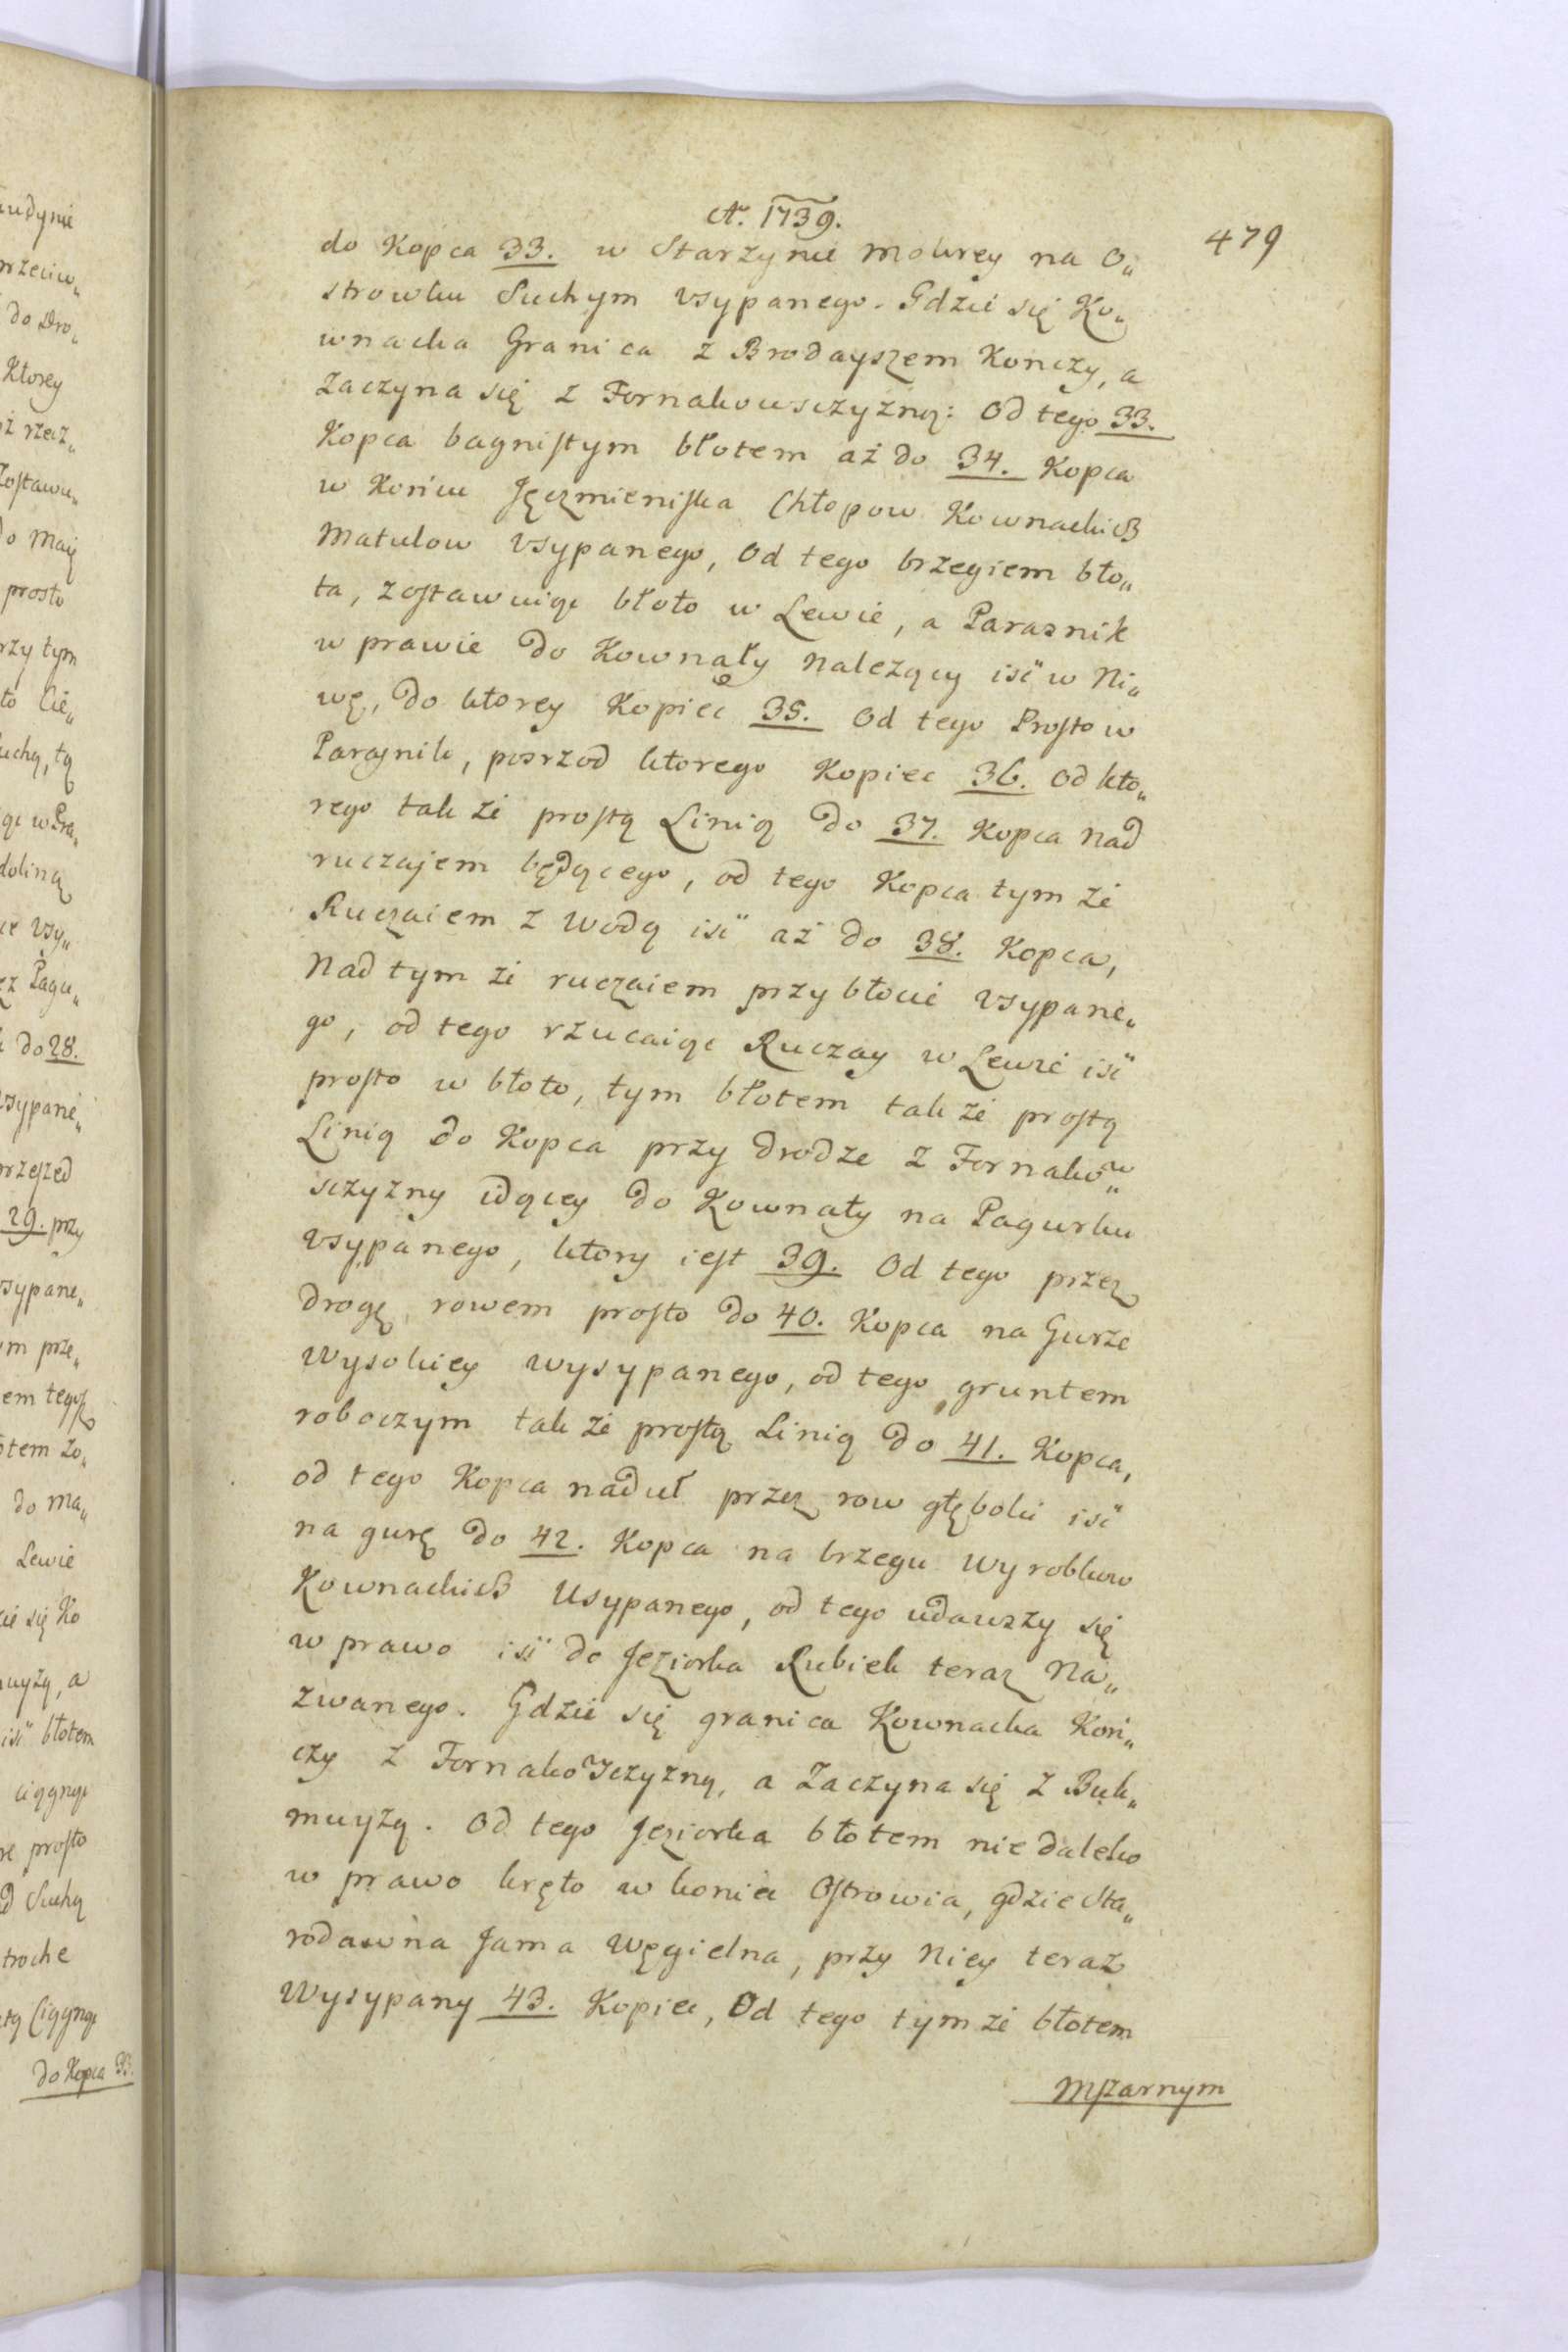 A. 1739.
479
do Kopca 33. w Starzynie mokrey na O„
strowku Suchym vsypanego. Gdzie się Ko„
wnacka Granica z Brodayszem Konczy, a
Zaczyna się z Fornakowsczyzną: Od tego 33.
Kopca bagnistym błotem aż do 34. Kopca
w Koncu Jęczmieniska Chłopow Kownackich
Matulow vsypanego, Od tego brzegiem bło„
ta, zostawuiąc błoto w Lewie, a Parasnik
w prawie do Kownaty należący iść w Ni„
wę, do ktorey Kopiec 35. Od tego Prosto w
Parasnik, posrzod ktorego Kopiec 36. Od kto„
rego tak że prostą Linią do 37. Kopca nad
ruczajem będącego, od tego Kopca tym że
Ruczaiem z wodą iść aż do 38. Kopca,
Nad tym że ruczaiem przy błocie vsypane„
go, od tego rzucaiąc Ruczay w Lewie iść
prosto w błoto, tym błotem tak że prostą
Linią do Kopca przy drodze z Fornakow„
sczyzny idącey do Kownaty na Pagurku
vsypanego, ktory iest 39. Od tego przez
drogę, rowem prosto do 40. Kopca na Gurze
Wysokiey wysypanego, od tego gruntem
roboczym tak że prostą Linią do 41. Kopca,
od tego Kopca naduł przez row głęboki iść
na gurę do 42. Kopca na brzegu wyrobkow
Kownackich Usypanego, od tego udawszy się
w prawo iść do Jeziorka Rubiek teraz Na„
zwanego. Gdzie się granica Kownacka Koń„
czy z Fornakowsczyzną, a Zaczyna się z Buk„
muyżą. Od tego Jeziorka błotem nie daleko
w prawo kręto w koniec Ostrowia, gdzie Sta„
rodawna Jama Węgielna, przy Niey teraz
Wysypany 43. Kopiec, Od tego tym że błotem
Mszarnym
udynie
rzeciw„
do Dro„
Ktorey
ż rzecz„
Zostawu„
do Maię
prosto
rzy tym
uchą, tą
doliną
vsy„
Pagu„
do 28.
vsypane„
rzeszed
29. przy
sypane„
m prze„
em tegoż
otem Zo„
do ma„
Lewie
się Ko
uyżą, a
iść błotem
ciągnąc
prosto
Suchą
troche
Ciągnąc
do Kopca 33.